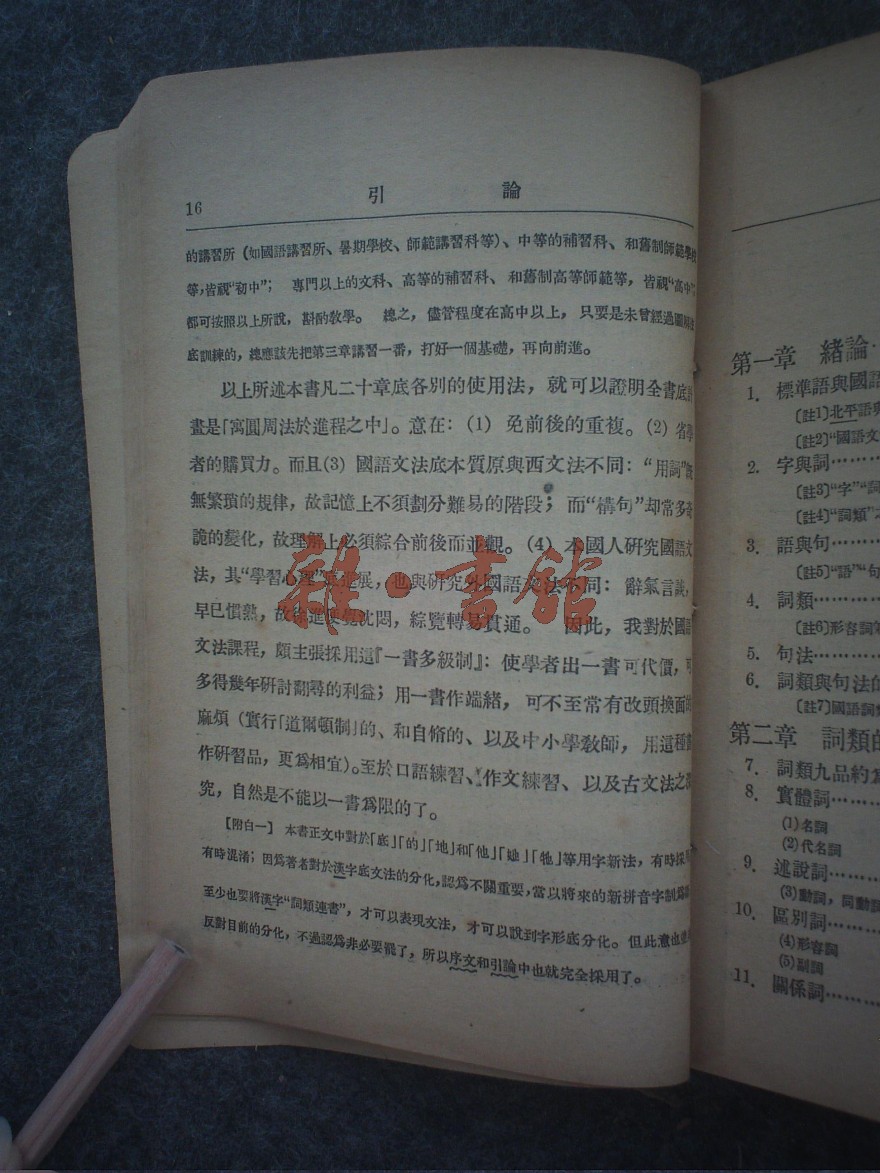 16
引 論
的講習所（如國語講習所、暑期學校、師範講習科等）、中等的補習科、和舊制師範學校
等，皆視“初中”； 專門以上的文科、高等的補習科、和舊制高等師範等，皆視“高中”，
都可按照以上所說，斟酌敎學。 總之，儘管程度在高中以上，只要是未曾經過
底訓練的，總應該先把第三章講習一番，打好一個基礎，再向前進。
以上所述本書凡二十章底各別的使用法，就可以證明全書底計
畫是「寓圓周法於進程之中」。意在：(1) 免前後的重複。(2) 省學
者的購買力。而且(3) 國語文法底本質原與西文法不同：“用詞”旣
無繁瑣的規律，故記憶上不須劃分難易的階段；而“構句”却常多奇
詭的變化，故理解上必須綜合前後而並觀。(4) 本國人研究國語文
法，其“學習心理” 進展，也與研究外國語文法不同：辭氣言議，
早已慣熟，故徐進 覺沈悶，綜覽轉易貫通。 因此，我對於國語
文法課程，頗主張採用這『一書多級制』：使學者出一書可代價，可
多得幾年研討翻尋的利益；用一書作端緒，可不至常有改頭換面的
麻煩（實行「道爾頓制」的、和自脩的、以及中小學敎師，用這種書
作研習品，更爲相宜）。至於口語練習、作文練習、以及古文法之
究，自然是不能以一書爲限的了。
〔附白一〕 本書正文中對於「底」「的」「地」和「他」「她」「牠」等用字新法，有時採用
有時混淆；因爲著者對於漢字底文法的分化，認爲不關重要，當以將來的新拼音字制爲
至少也要將漢字“詞類連書”，才可以表現文法，才可以說到字形底分化。但此
反對目前的分化，不過認爲非必要罷了，所以序文和引論中也就完全採用了。
雜·書館
第一章 緒論
1. 標準語與國語
〔註1〕北平語與
〔註2〕“國語文
2. 字與詞………
〔註3〕“字”“詞
〔註4〕“詞類”
3. 語與句………
〔註5〕“語”“句
4. 詞類…………
〔註6〕形容詞
5. 句法…………
6. 詞類與句法的
〔註7〕國語詞
第二章 詞類的
7. 詞類九品約
8. 實體詞………
(1)名詞
(2)代名詞
9. 述說詞………
(3)動詞，同動詞
10. 區別詞………
(4)形容詞
(5)副詞
11. 關係詞………